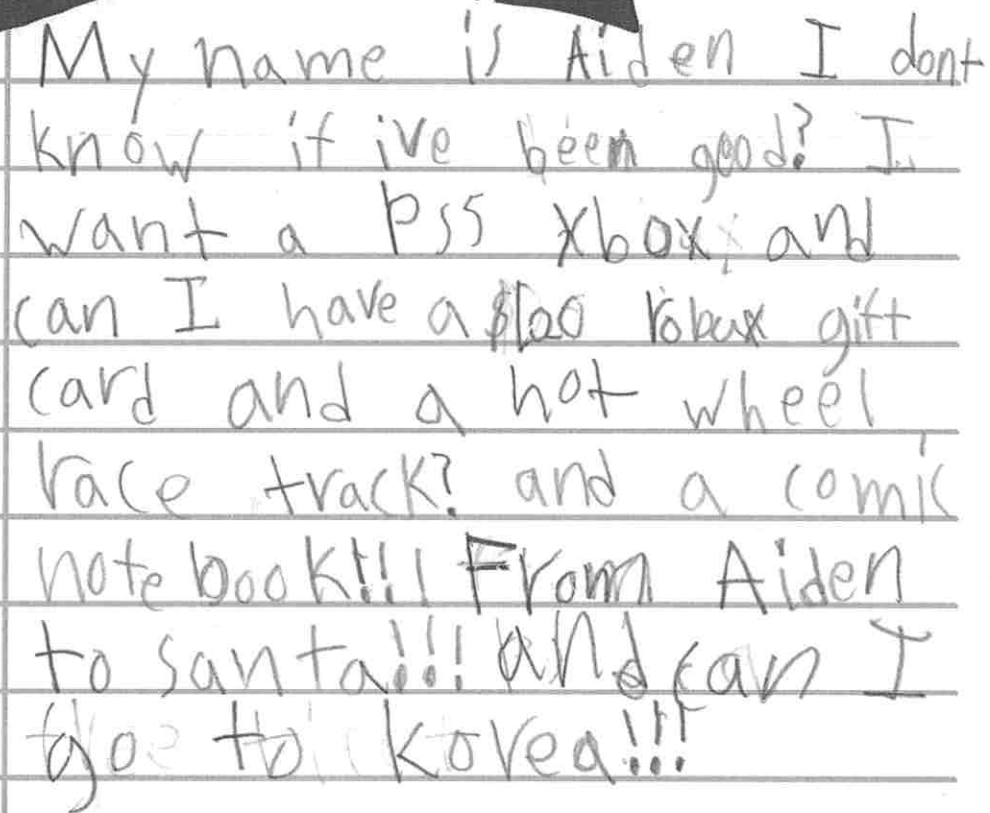 My name is Aiden I dont
know if ive been good? I
want a PS5 xbox, and
can I have a $100 robux gift
card and a hot wheel
race track? and a comic
notebook!!! From Aiden
to santa!!! and can I
go to korea!!!